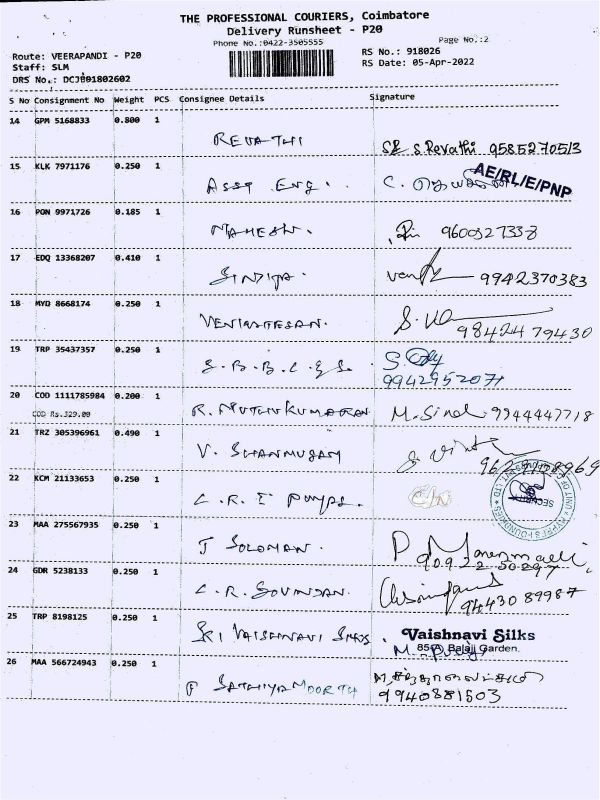 THE PROFESSIONAL COURIERS, Coimbatore
Delivery Runsheet - P20
Phone No.:0422-3505555
Page No.:2
Route: VEERAPANDI - P20
RS No.: 918026
Staff: SLM
RS Date: 05-Apr-2022
DRS No.: DCJB01802602
S No Consignment No Weight PCS Consignee Details Signature
14 GPM 5168833 0.800 1
REVATHI S. Revathi 9585270513
15 KLK 7971176 0.250 1
AE/RL/E/PNP
ASST ENG. C.
16 PON 9971726 0.185 1
MAHESH. 9600327338
17 EDQ 13368207 0.410 1
SINDIYA. 9942370383
18 MYD 8668174 0.250 1
VENKATESAN. 9842479430
19 TRP 35437357 0.250 1
9942952071
20 COD 1111785984 0.200 1
COD Rs.329.00
R. MUTHUKUMARAN M. 9944447718
21 TRZ 305396961 0.490 1
V. SHANMUGAM 9629958969
22 KCM 21133653 0.250 1
C.R.I PUMPS.
23 MAA 275567935 0.250 1
J SOLOMAN.
24 GDR 5238133 0.250 1
C.R. GOVINDAN. 9443089987
25 TRP 8198125 0.250 1
SRI VAISHNAVI SILKS. Vaishnavi Silks
Balaji Garden.
26 MAA 566724943 0.250 1
P SATHIYAMOORTH
9940881503